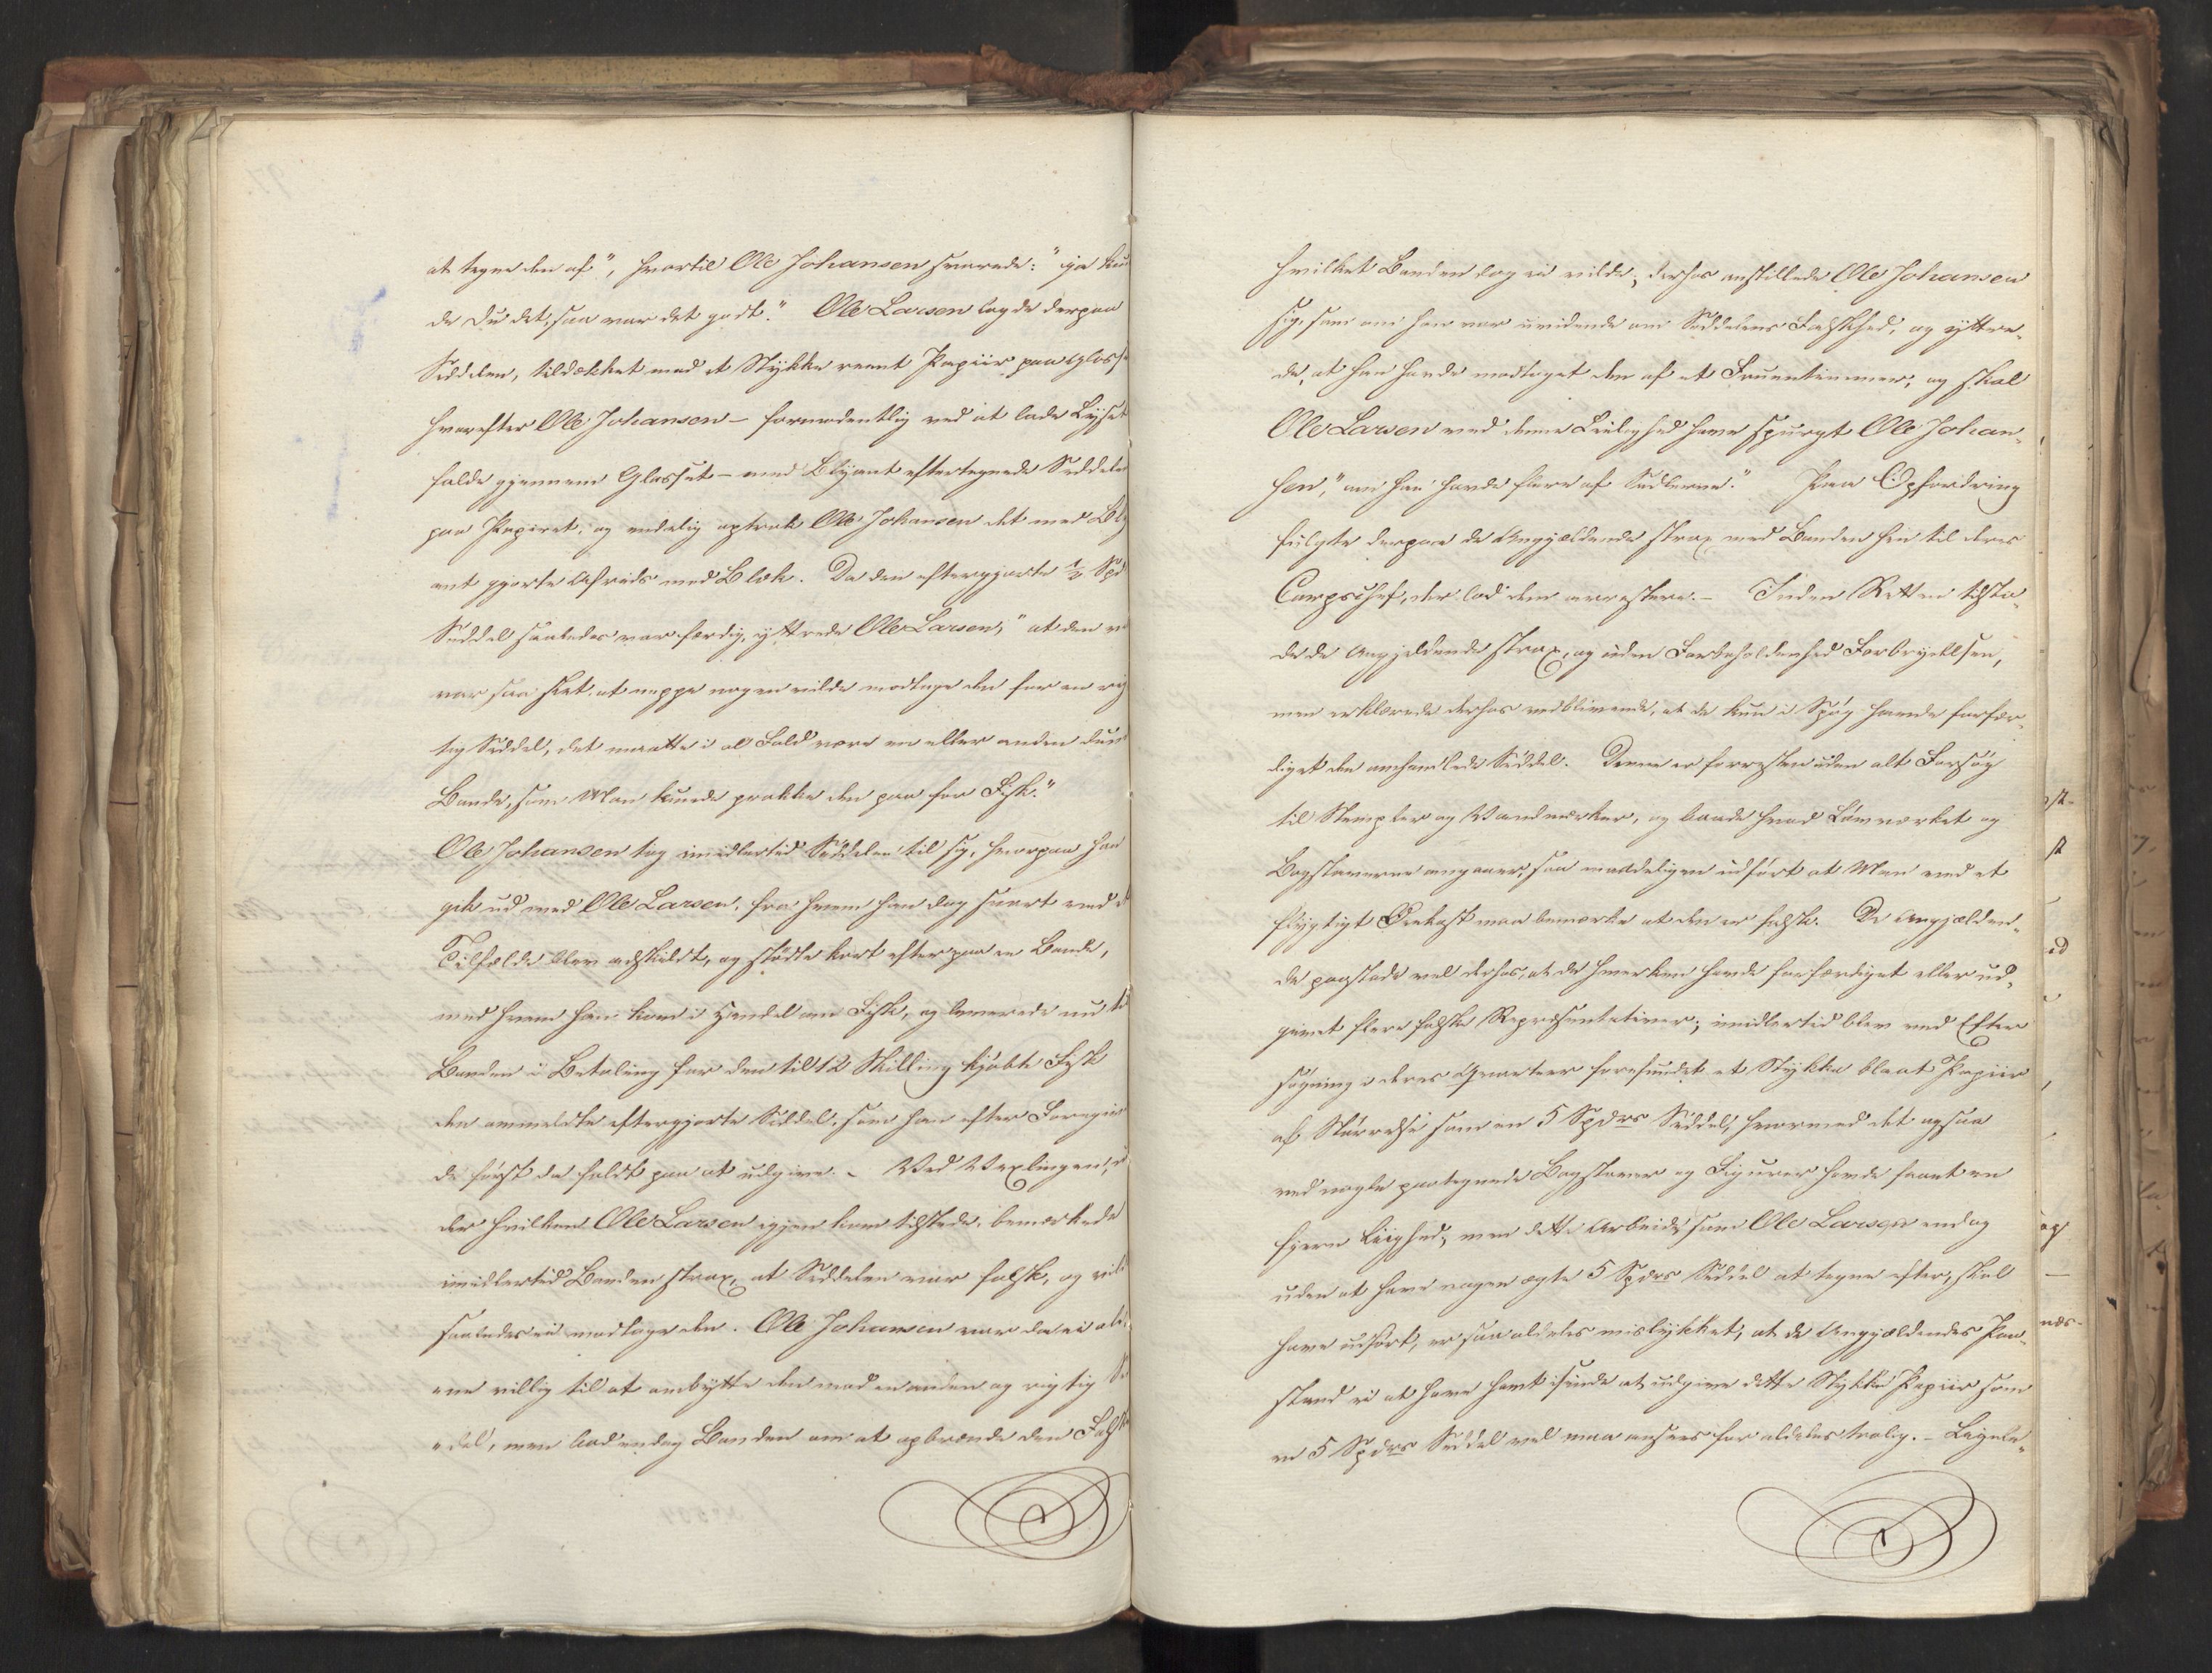 at tegne den af", hvortil Ole Johansen svarede: "ja kun
de Du det, saa var det godt." Ole Larsen lagde derpaa
Seddelen, tildækket med et Stykke reent Papiir paa Glass
hvorefter Ole Johansen – formodentlig ved at lade Lyset
falde gjennem Glasset – med Blyant eftertegnede Seddelen
paa Papiret, og endelig optrak Ole Johansen det med Bly
ant gjorte Afrids med Blæk. Da den eftergjorte ½ Spd
Seddel saaledes var færdig, yttrede Ole Larsen, "at den
var saa slet, at neppe nogen vilde modtage den for en rig
tig Seddel, det maatte i al Fald være en eller anden dum
Bonde, som Man kunde prakke den paa for Fisk."
Ole Johansen tog imidlertid Seddelen til sig, hvorpaa han
gik ud med Ole Larsen, fra hvem han dog snart ved
Tilfælde blev adskildt, og stødte kort efter paa en Bonde,
med hvem han kom i Handel om Fisk, og leverede nu
Bonden i Betaling for den til 12 Skilling kjøbte Fisk
den ommeldte eftergjorte Seddel, som han efter Foregi
de først da faldt paa at udgive. – Ved Vexlingen, 
der hvilken Ole Larsen igjen kom tilstede, bemærkede
imidlertid Bonden strax, at Seddelen var falsk, og vil
saaledes ei modtage den. Ole Johansen var da ei ale
ene villig til at ombytte den med en anden og rigtig Se
del, men bad endog Bonden om at opbrænde den Falsk
hvilket Bonden dog ei vilde; derhos anstillede Ole Johansen
sig, som om han var uvidende om Seddelens Falskhed, og yttre-
de, at han havde modtaget den af et Fruentimmer, og skal
Ole Larsen ved denne Leilighed have spurgt Ole Johan-
sen, "om han havde flere af Sedlerne". Paa Opfordring
fulgte derpaa de Angjældende strax med Bonden hen til deres
Corpschef, der lod dem arrestere. – Inden Retten tilsto-
de de Angjældende strax, og uden Forbeholdenhed Forbrydelsen,
men erklærede derhos vedblivende, at de kun i Spøg havde forfær-
diget den omhandlede Seddel. Denne er forresten uden alt Forsøg
til Stempler og Vandmærker, og baade hvad Løvværket og
Bogstaverne angaaer, saa maadeligen udført at Man ved et
flygtigt Øiekast maa bemærke at den er falsk. De Angjælden-
de paastode vel derhos, at de hverken havde forfærdiget eller ud-
givet flere falske Repræsentativer; imidlertid blev ved Efter
søgning i deres Qvarteer forefundet et Stykke blaat Papiir
af Størrelse som en 5 Spdrs Seddel, hvormed det ogsaa
ved nogle paategnede Bogstaver og Figurer havde faaet en
fjern Liighed; men dette Arbeide, som Ole Larsen endog
uden at have nogen ægte 5 Spdrs Seddel at tegne efter, skal
have udført, er saa aldeles mislykket, at de Angjældendes Paa-
stand ei at have havt isinde at udgive dette Stykke Papiir som
en 5 Spdrs Seddel vel maa ansees for aldeles trolig. – Ligele-